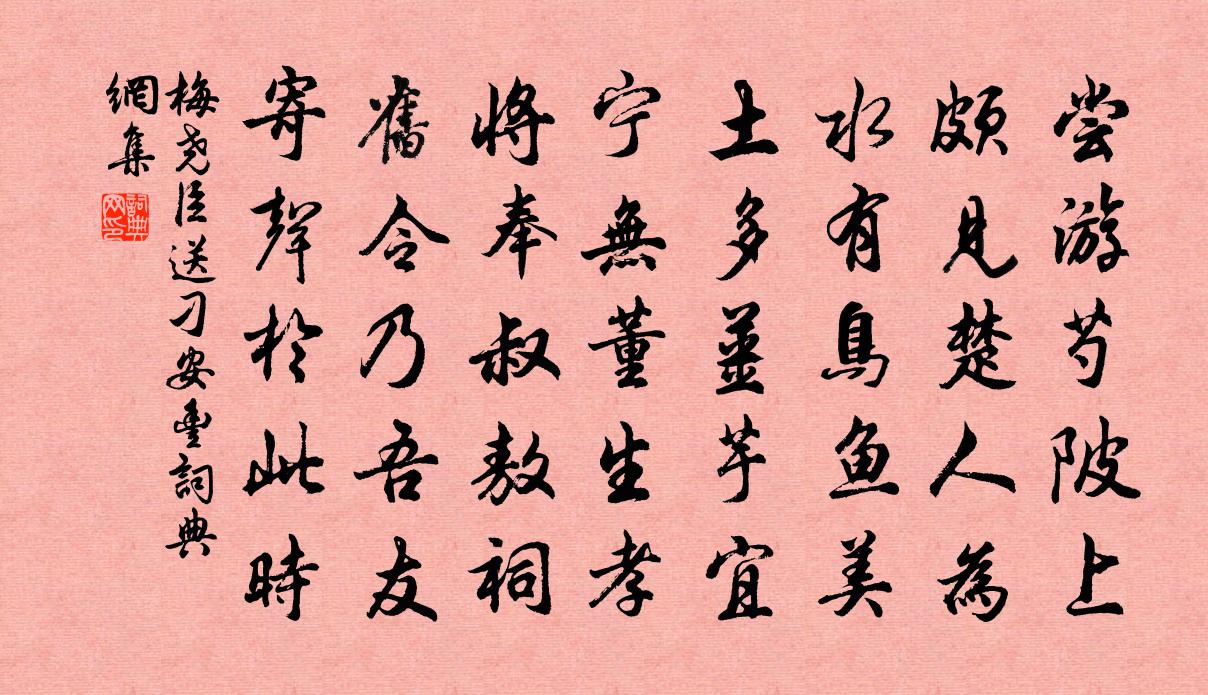 尝游芍陂上
頗見楚人為
水有鳥鱼美
土多薑芋宜
宁無董生孝
将奉叔敖祠
舊令乃吾友
寄聲於此時
梅尧臣送刁安豊詞典
網集
詞典网印